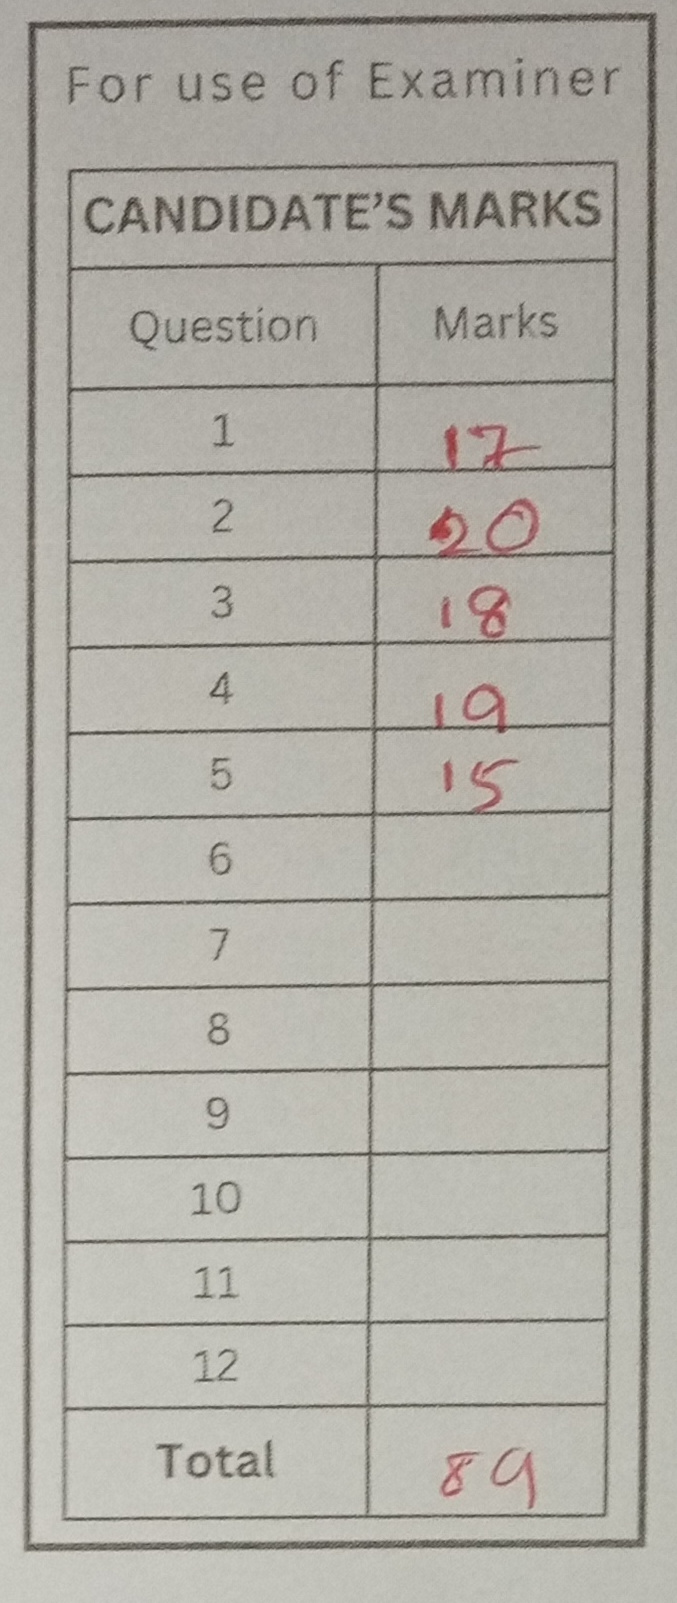 For use of Examiner
CANDIDATE'S MARKS
Question Marks
1 17
2 20
3 18
4 19
5 15
6
7
8
9
10
11
12
Total 89